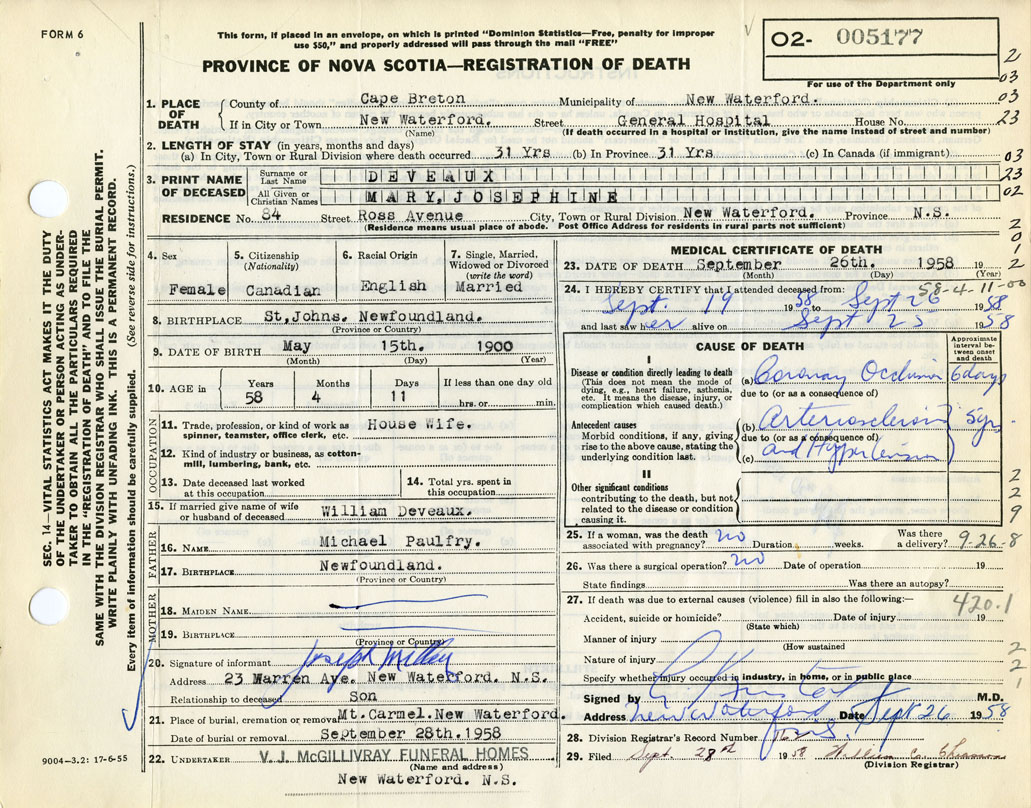 FORM 6
This form, if placed in an envelope, on which is printed "Dominion Statistics—Free, penalty for improper
use $50," and properly addressed will pass through the mail "FREE"
PROVINCE OF NOVA SCOTIA—REGISTRATION OF DEATH
O2- 005177
For use of the Department only
2
03
03
23
03
23
02
2
0
1
2
SEC. 14—VITAL STATISTICS ACT MAKES IT THE DUTY
OF THE UNDERTAKER OR PERSON ACTING AS UNDER-
TAKER TO OBTAIN ALL THE PARTICULARS REQUIRED
IN THE "REGISTRATION OF DEATH" AND TO FILE THE
SAME WITH THE DIVISION REGISTRAR WHO SHALL ISSUE THE BURIAL PERMIT.
WRITE PLAINLY WITH UNFADING INK. THIS IS A PERMANENT RECORD.
Every item of information should be carefully supplied. (See reverse side for instructions.)
1. PLACE OF DEATH
County of Cape Breton Municipality of New Waterford.
If in City or Town New Waterford. Street General Hospital House No.
(Name) (If death occurred in a hospital or institution, give the name instead of street and number)
2. LENGTH OF STAY (in years, months and days)
(a) In City, Town or Rural Division where death occurred 31 Yrs (b) In Province 31 Yrs (c) In Canada (if immigrant)
3. PRINT NAME OF DECEASED
Surname or Last Name DEVEAUX
All Given or Christian Names MARY,JOSEPHINE
RESIDENCE No. 84 Street Ross Avenue City, Town or Rural Division New Waterford. Province N.S.
(Residence means usual place of abode. Post Office Address for residents in rural parts not sufficient)
4. Sex
Female
5. Citizenship
(Nationality)
Canadian
6. Racial Origin
English
7. Single, Married,
Widowed or Divorced
(write the word)
Married
8. BIRTHPLACE St,Johns. Newfoundland.
(Province or Country)
9. DATE OF BIRTH May 15th. 1900
(Month) (Day) (Year)
10. AGE in
Years Months Days If less than one day old
58 4 11 hrs. or min.
OCCUPATION
11. Trade, profession, or kind of work as House Wife.
spinner, teamster, office clerk, etc.
12. Kind of industry or business, as cotton-
mill, lumbering, bank, etc.
13. Date deceased last worked
at this occupation
14. Total yrs. spent in
this occupation
15. If married give name of wife
or husband of deceased William Deveaux.
FATHER
16. NAME Michael Paulfry.
17. BIRTHPLACE Newfoundland.
(Province or Country)
MOTHER
18. MAIDEN NAME
19. BIRTHPLACE
(Province or Country)
20. Signature of informant Joseph
Address 23 Warren Ave. New Waterford. N.S.
Relationship to deceased Son
21. Place of burial, cremation or removal Mt.Carmel.New Waterford.
Date of burial or removal September 28th.1958
22. UNDERTAKER V. J. McGILLIVRAY FUNERAL HOMES
(Name and address)
New Waterford. N.S.
9004—3.2: 17-6-55
MEDICAL CERTIFICATE OF DEATH
23. DATE OF DEATH September 26th. 1958 19
(Month) (Day) (Year)
58-4-11-00
24. I HEREBY CERTIFY that I attended deceased from:
Sept. 19 1958 to Sept 26 1958
and last saw her alive on Sept 25 1958
CAUSE OF DEATH
Approximate interval be- tween onset and death
I
Disease or condition directly leading to death
(This does not mean the mode of
dying, e.g., heart failure, asthenia,
etc. It means the disease, injury, or
complication which caused death.)
(a) Coronary Occlusion 6 days
due to (or as a consequence of)
Antecedent causes
Morbid conditions, if any, giving
rise to the above cause, stating the
underlying condition last.
(b) Arteriosclerosis 5 yrs.
due to (or as a consequence of)
(c) and Hypertension
II
Other significant conditions
contributing to the death, but not
related to the disease or condition
causing it.
2
2
9
25. If a woman, was the death
associated with pregnancy? no Duration weeks. Was there
a delivery? 9-26-8
26. Was there a surgical operation? no Date of operation 19
State findings Was there an autopsy?
27. If death was due to external causes (violence) fill in also the following:— 420.1
Accident, suicide or homicide? Date of injury 19
(State which)
Manner of injury
(How sustained
Nature of injury
Specify whether injury occurred in industry, in home, or in public place
2
2
1
Signed by M.D.
Address New Waterford Date Sept 26 1958
28. Division Registrar's Record Number
29. Filed Sept. 28th 1958 William C.
(Division Registrar)